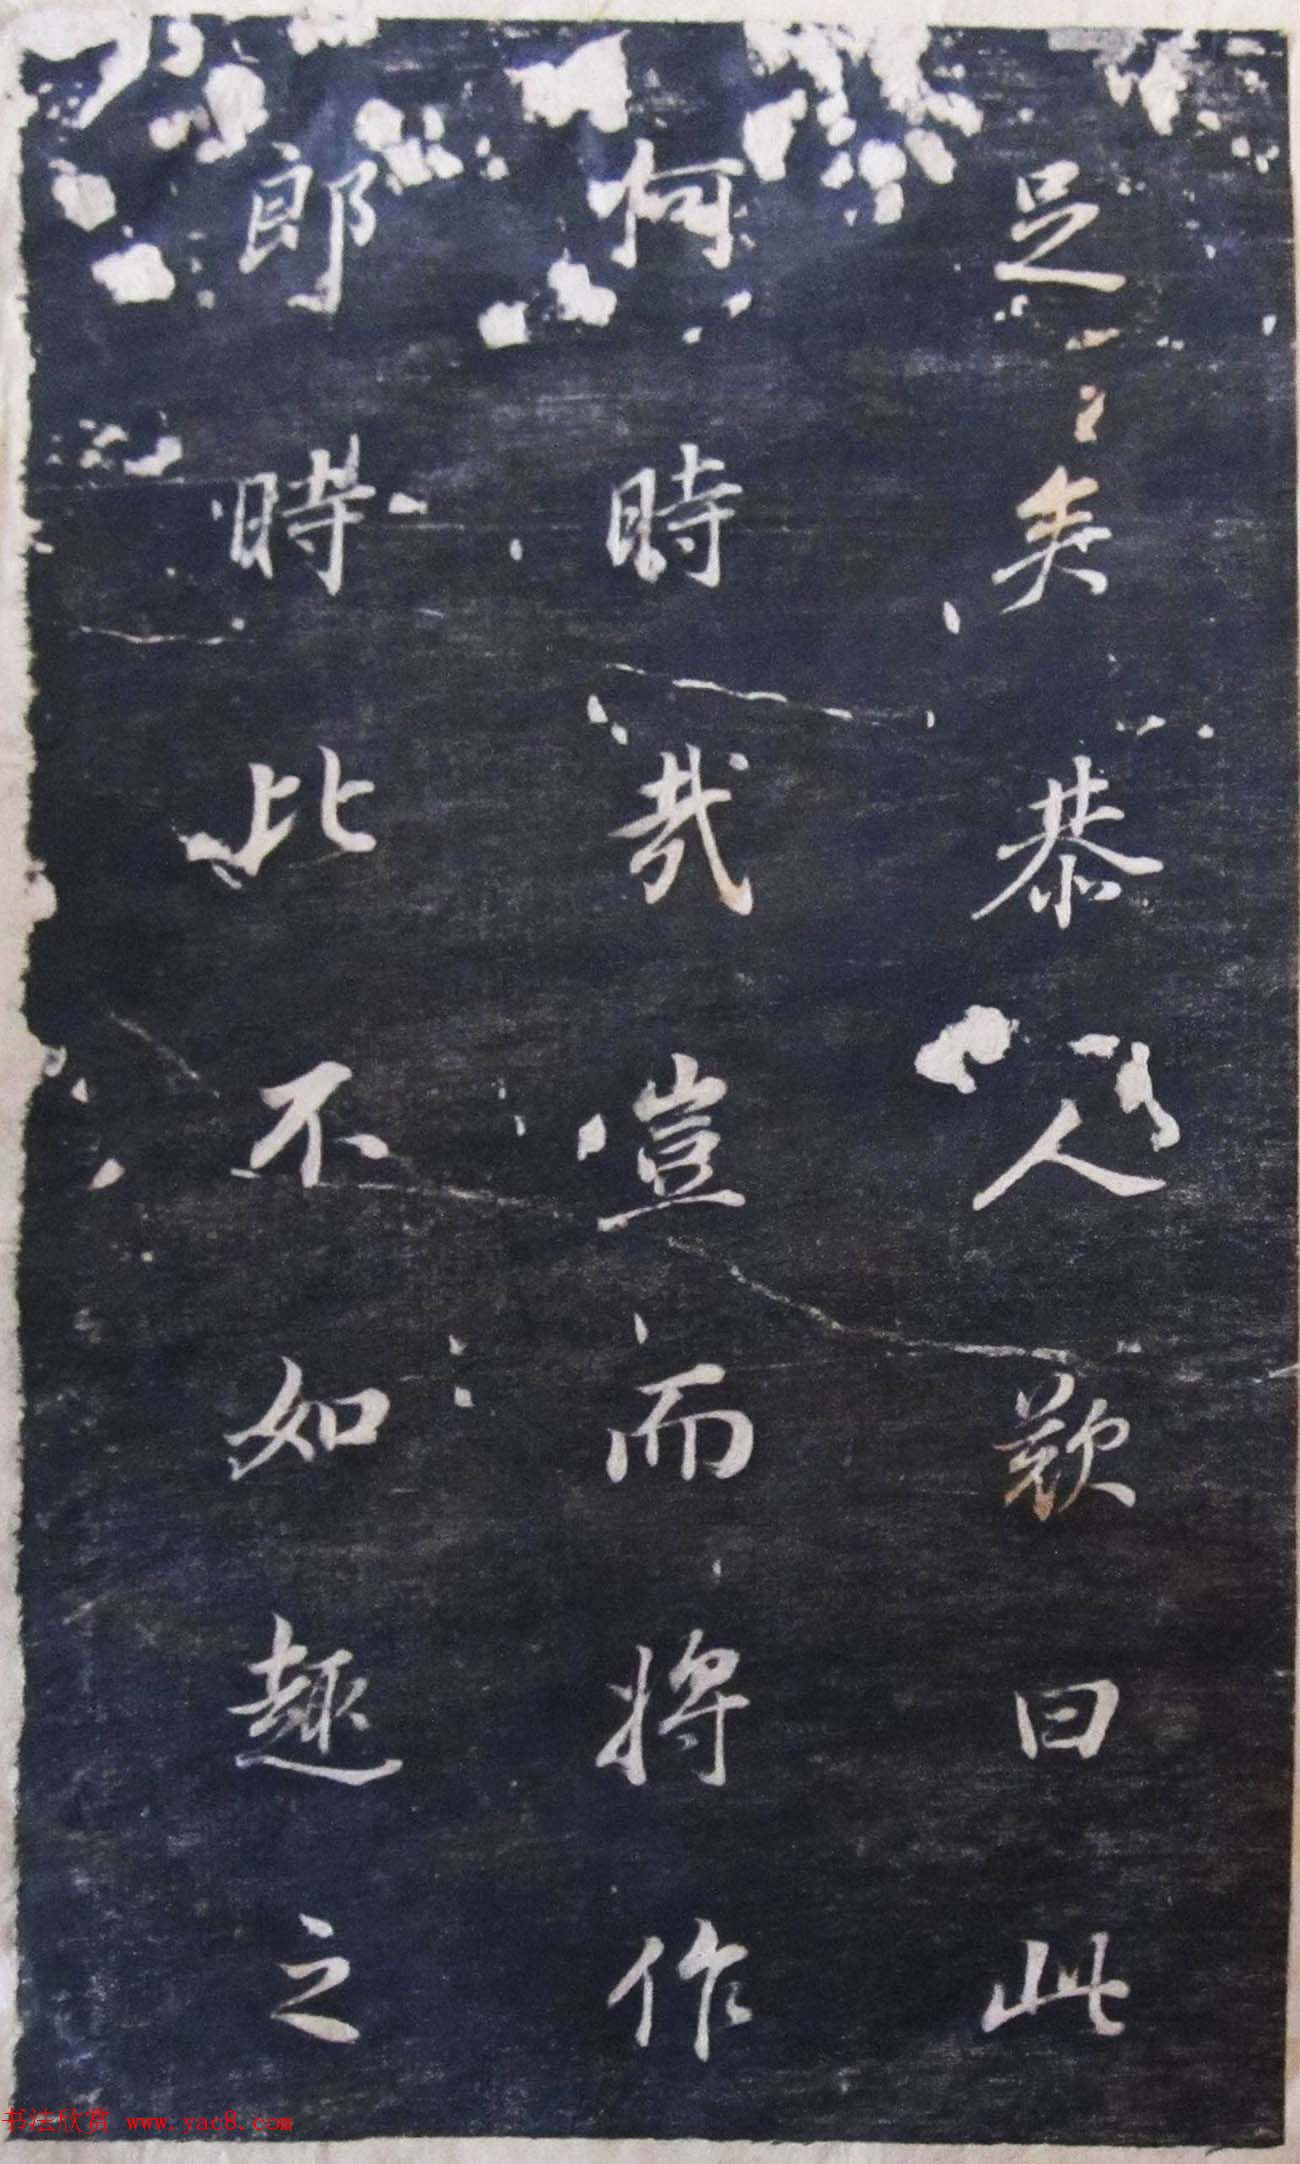 足矣恭人歎曰此
何時哉豈而將作
郎時比不如趣之
书法欣赏 www.yac8.com